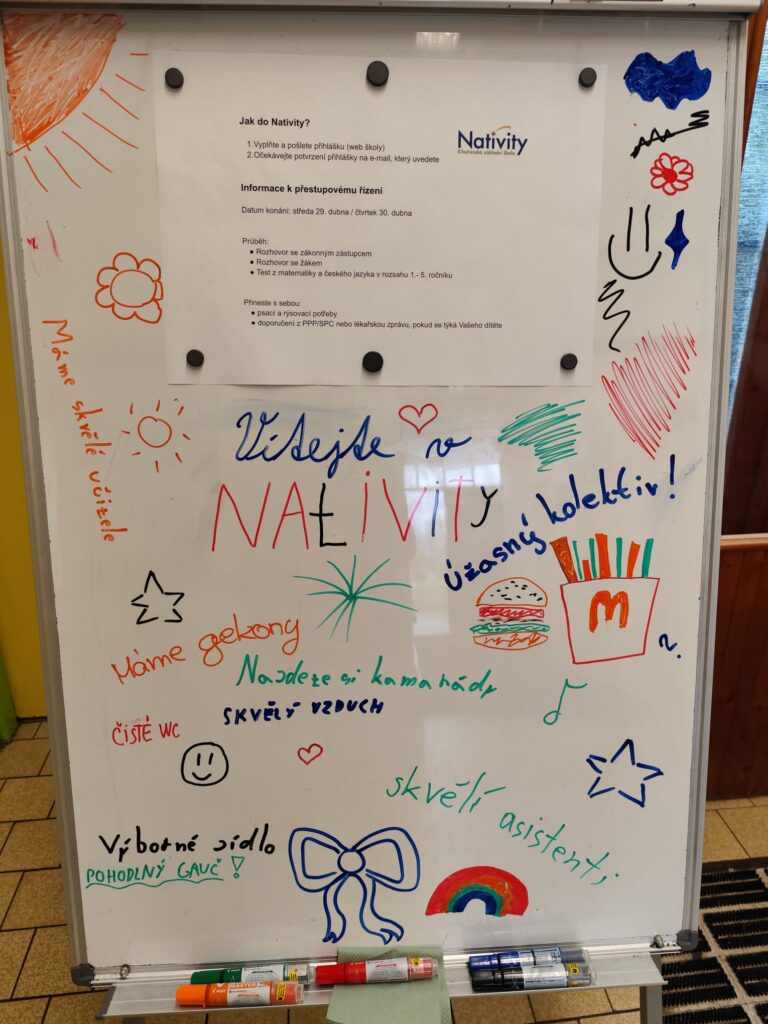 Jak do Nativity?
1. Vyplňte a pošlete přihlášku (web školy)
2. Očekávejte potvrzení přihlášky na e-mail, který uvedete
Nativity
Křesťanská základní škola
Informace k přestupovému řízení
Datum konání: středa 29. dubna / čtvrtek 30. dubna
Průběh:
● Rozhovor se zákonným zástupcem
● Rozhovor se žákem
● Test z matematiky a českého jazyka v rozsahu 1.- 5. ročníku
Přineste s sebou:
● psací a rýsovací potřeby
● doporučení z PPP/SPC nebo lékařskou zprávu, pokud se týká Vašeho dítěte
Máme skvělé učitele
Vítejte v
NATIVITY
Úžasný kolektiv!
M
Máme gekony
Najdete si kamarády
SKVĚLÝ VZDUCH
ČISTÉ WC
skvělí asistenti
Výborné jídlo
POHODLNÝ GAUČ!